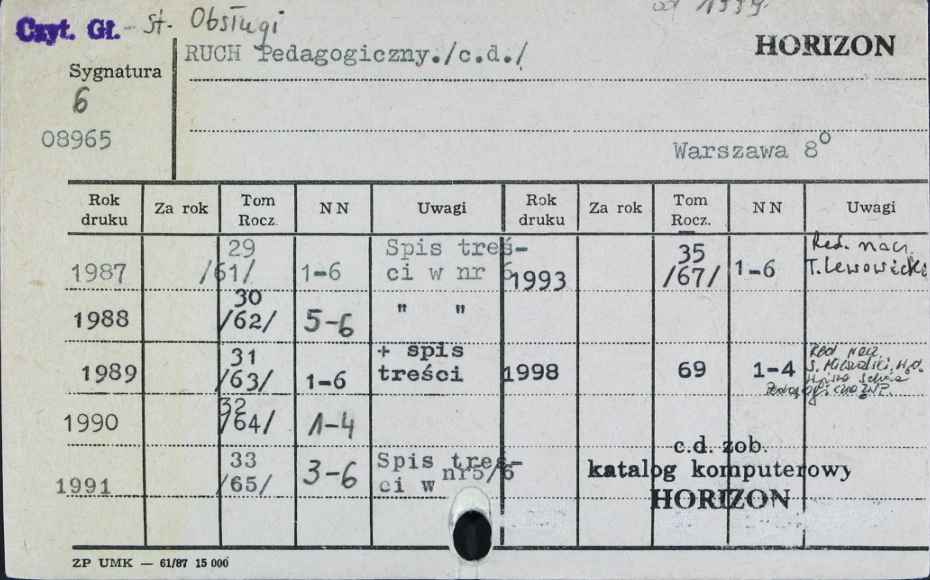 Czyt. Gł. - St. Obsługi
od 1999.
RUCH Pedagogiczny./c.d./
HORIZON
Sygnatura
6
08965
Warszawa 8°
Rok druku Za rok Tom Rocz. NN Uwagi Rok druku Za rok Tom Rocz. NN Uwagi
1987 29 /61/ 1-6 Spis treś-
ci w nr 6
1993 35 /67/ 1-6 Red. nacz.
T. Lewowicki
1988 30 /62/ 5-6 " "
1989 31 /63/ 1-6 + spis
treści
1998 69 1-4 Red nacz.
1990 32 /64/ 1-4
1991 33 /65/ 3-6 Spis treś-
ci w nr5/6
c.d. zob.
katalog komputerowy
HORIZON
ZP UMK — 61/87 15 000